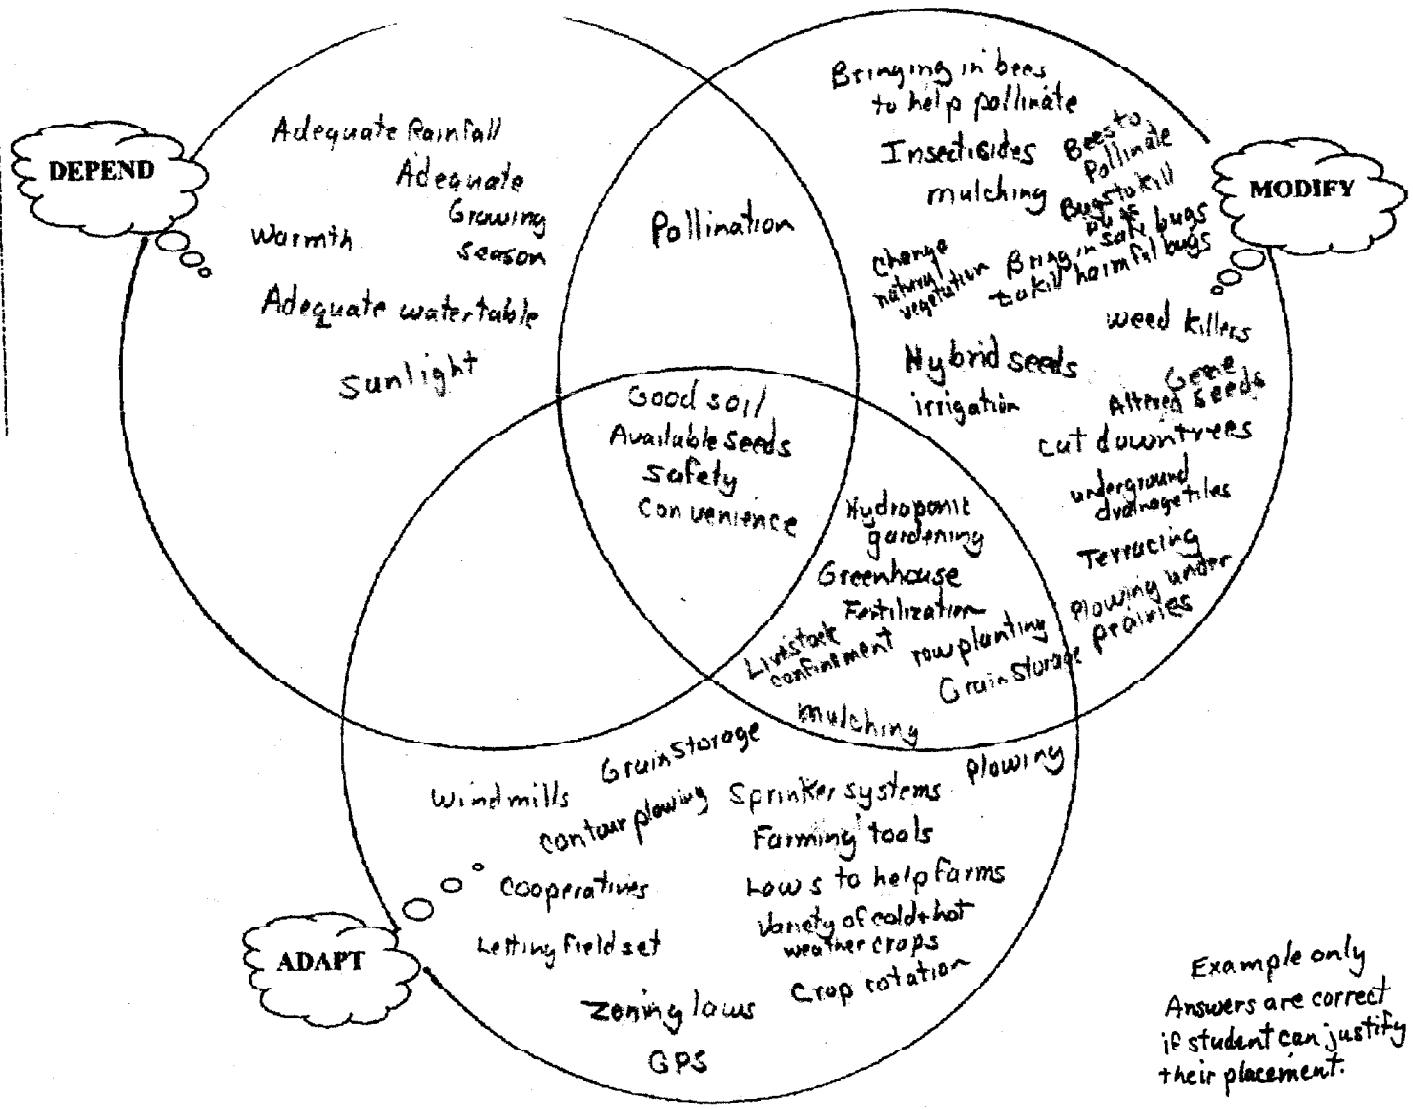 DEPEND
Adequate Rainfall
Adequate
Growing
season
Warmth
Adequate watertable
Sunlight
Pollination
MODIFY
Bringing in bees
to help pollinate
Insectisides
mulching
Bees to
Pollinate
Bugs to kill
bugs
Bring in safe bugs
to kill harmful bugs
Change
natural
vegetation
weed killers
Hybrid seeds
irrigation
Gene
Altered seeds
cut down trees
underground
drainage tiles
Terracing
Plowing under
prairies
Good soil
Available seeds
safety
Convenience
Hydroponic
gardening
Greenhouse
Fertilization
Livestock
confinement
row planting
Grain Storage
mulching
ADAPT
Grain Storage
Windmills
contour plowing
Sprinker systems
Plowing
Farming tools
Cooperatives
Laws to help farms
Variety of cold + hot
weather crops
Letting field set
Crop rotation
Zoning laws
GPS
Example only
Answers are correct
if student can justify
their placement.